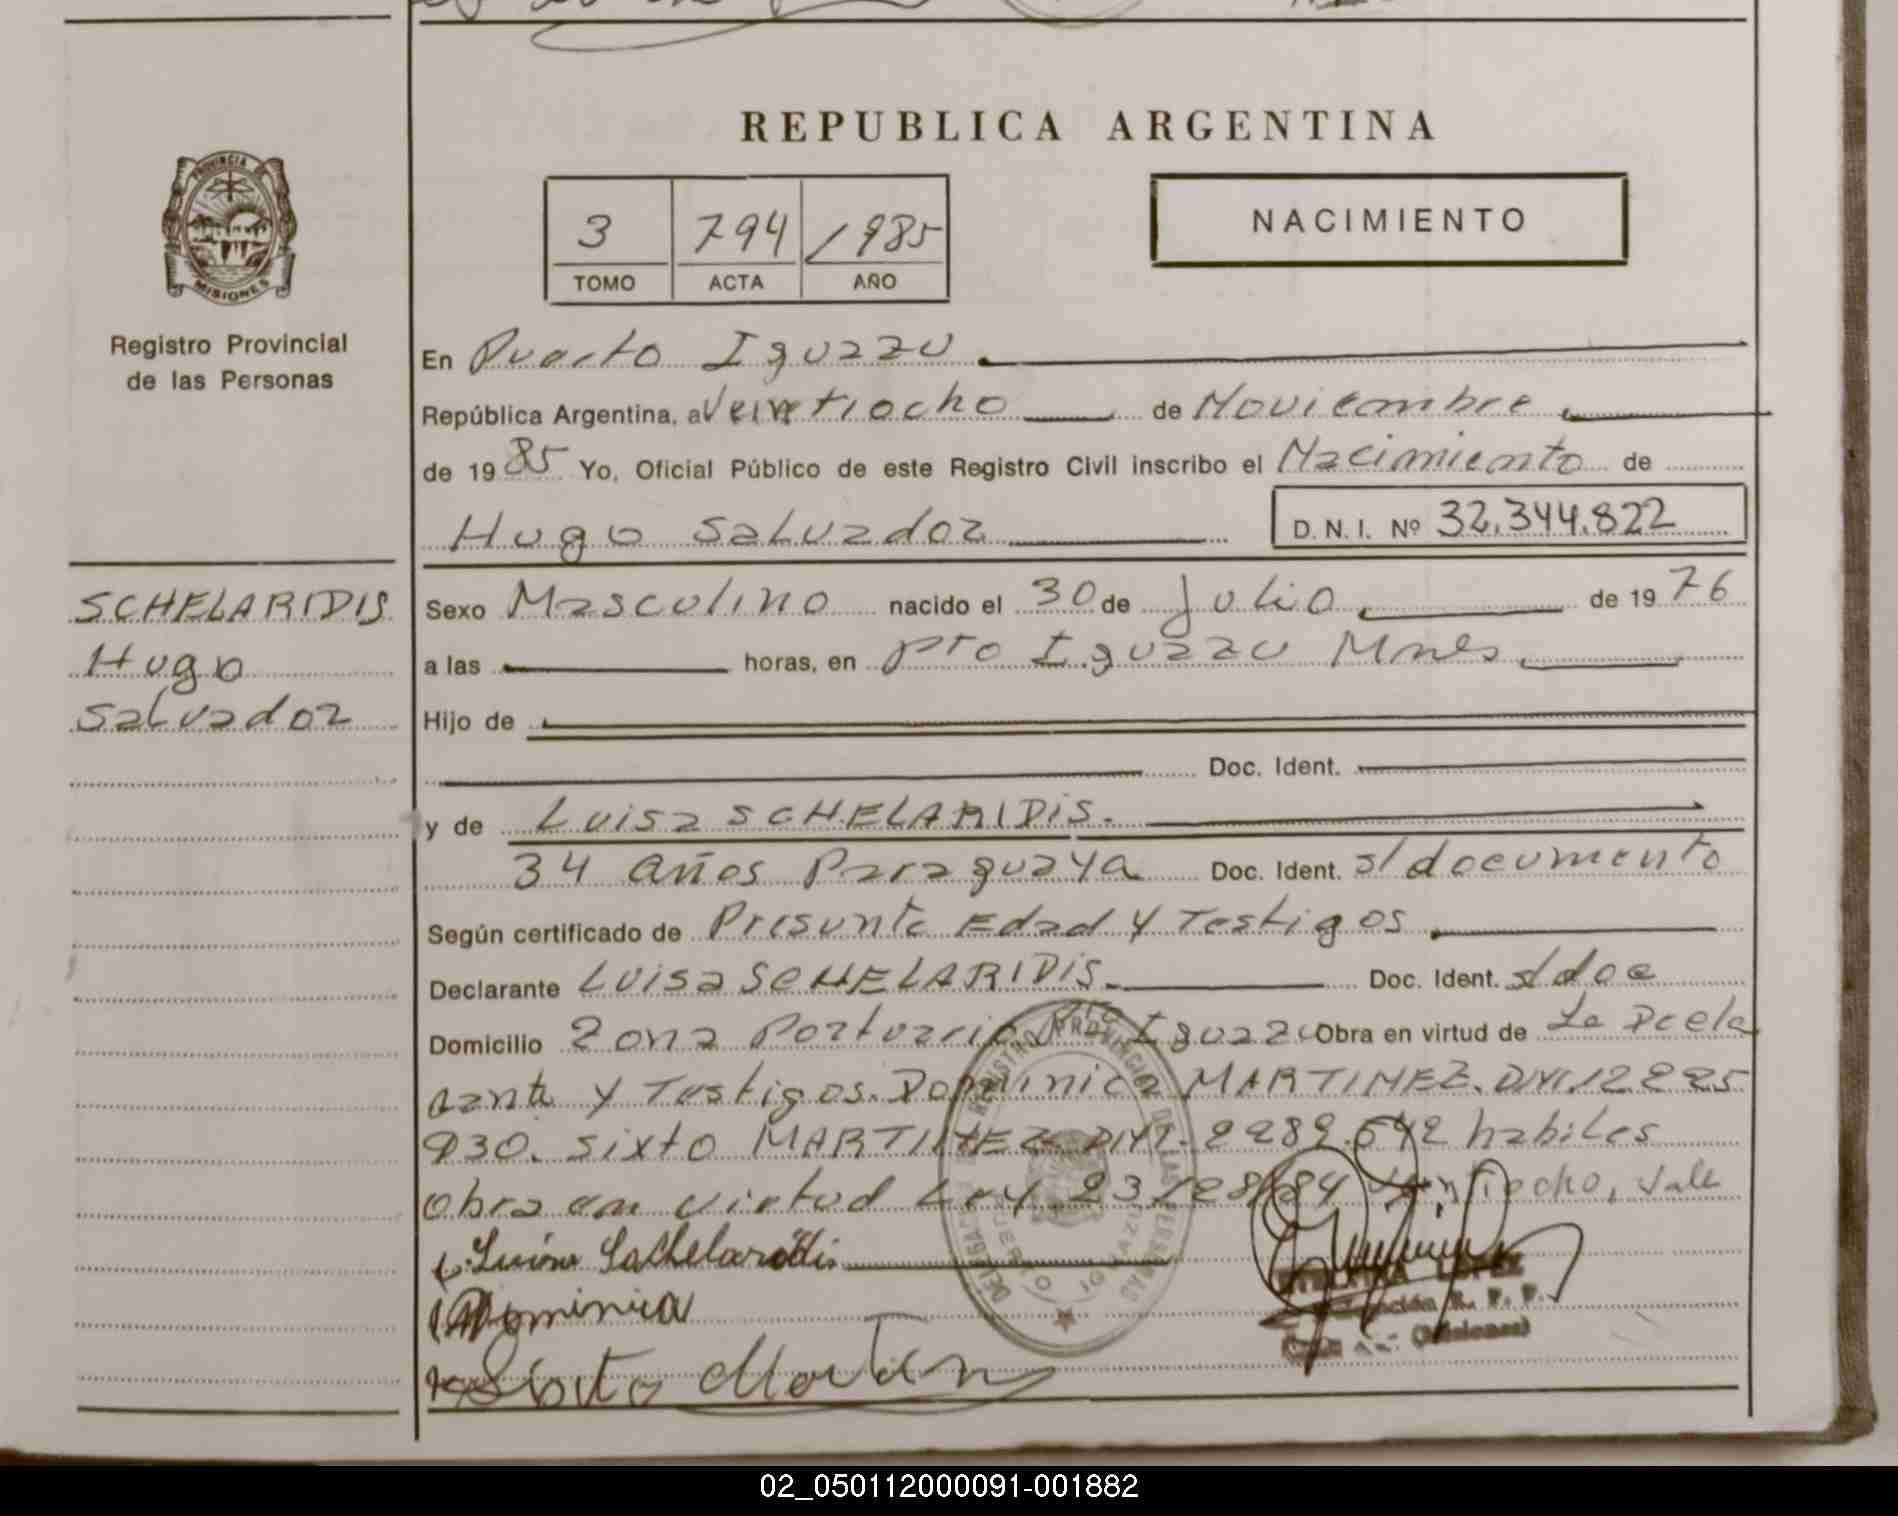 REPUBLICA ARGENTINA
PROVINCIA DE
MISIONES
Registro Provincial
de las Personas
3 794 1985
TOMO ACTA AÑO
NACIMIENTO
En Puerto Iguazu
República Argentina, a Veintiocho de Noviembre
de 1985 Yo, Oficial Público de este Registro Civil inscribo el Nacimiento de
Hugo Salvador D.N.I. Nº 32.344.822
SCHELARIDIS
Hugo
Salvador
Sexo Masculino nacido el 30 de Julio de 1976
a las horas, en Pto Iguazu Mnes
Hijo de
Doc. Ident.
y de Luisa SCHELARIDIS.
34 años Paraguaya Doc. Ident. s/documento
Según certificado de Presunta Edad y Testigos
Declarante Luisa SCHELARIDIS. Doc. Ident. s/doc
Domicilio Zona Portuaria Pto Iguazu Obra en virtud de La Decla
rante y Testigos. Dominica MARTINEZ. DNI.
930. Sixto MARTINEZ DNI. habiles
obra en virtud Ley Vale
Luisa Schelaridis
Dominica
Sixto
LOPEZ
R. P. P.
(Misiones)
02_050112000091-001882